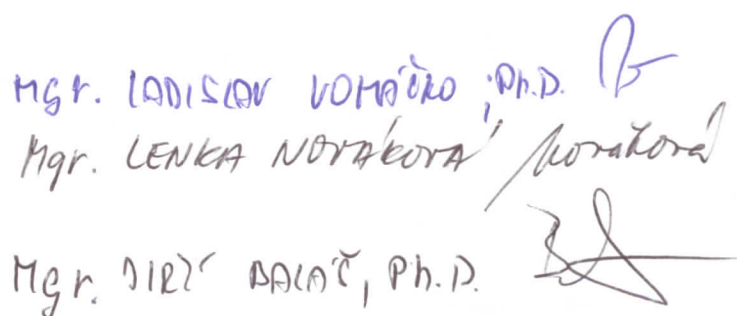 Mgr. LADISLAV VOMÁČKO, Ph.D.
Mgr. LENKA NOVÁKOVÁ Nováková
Mgr. JIŘÍ BALÁŠ, Ph.D.